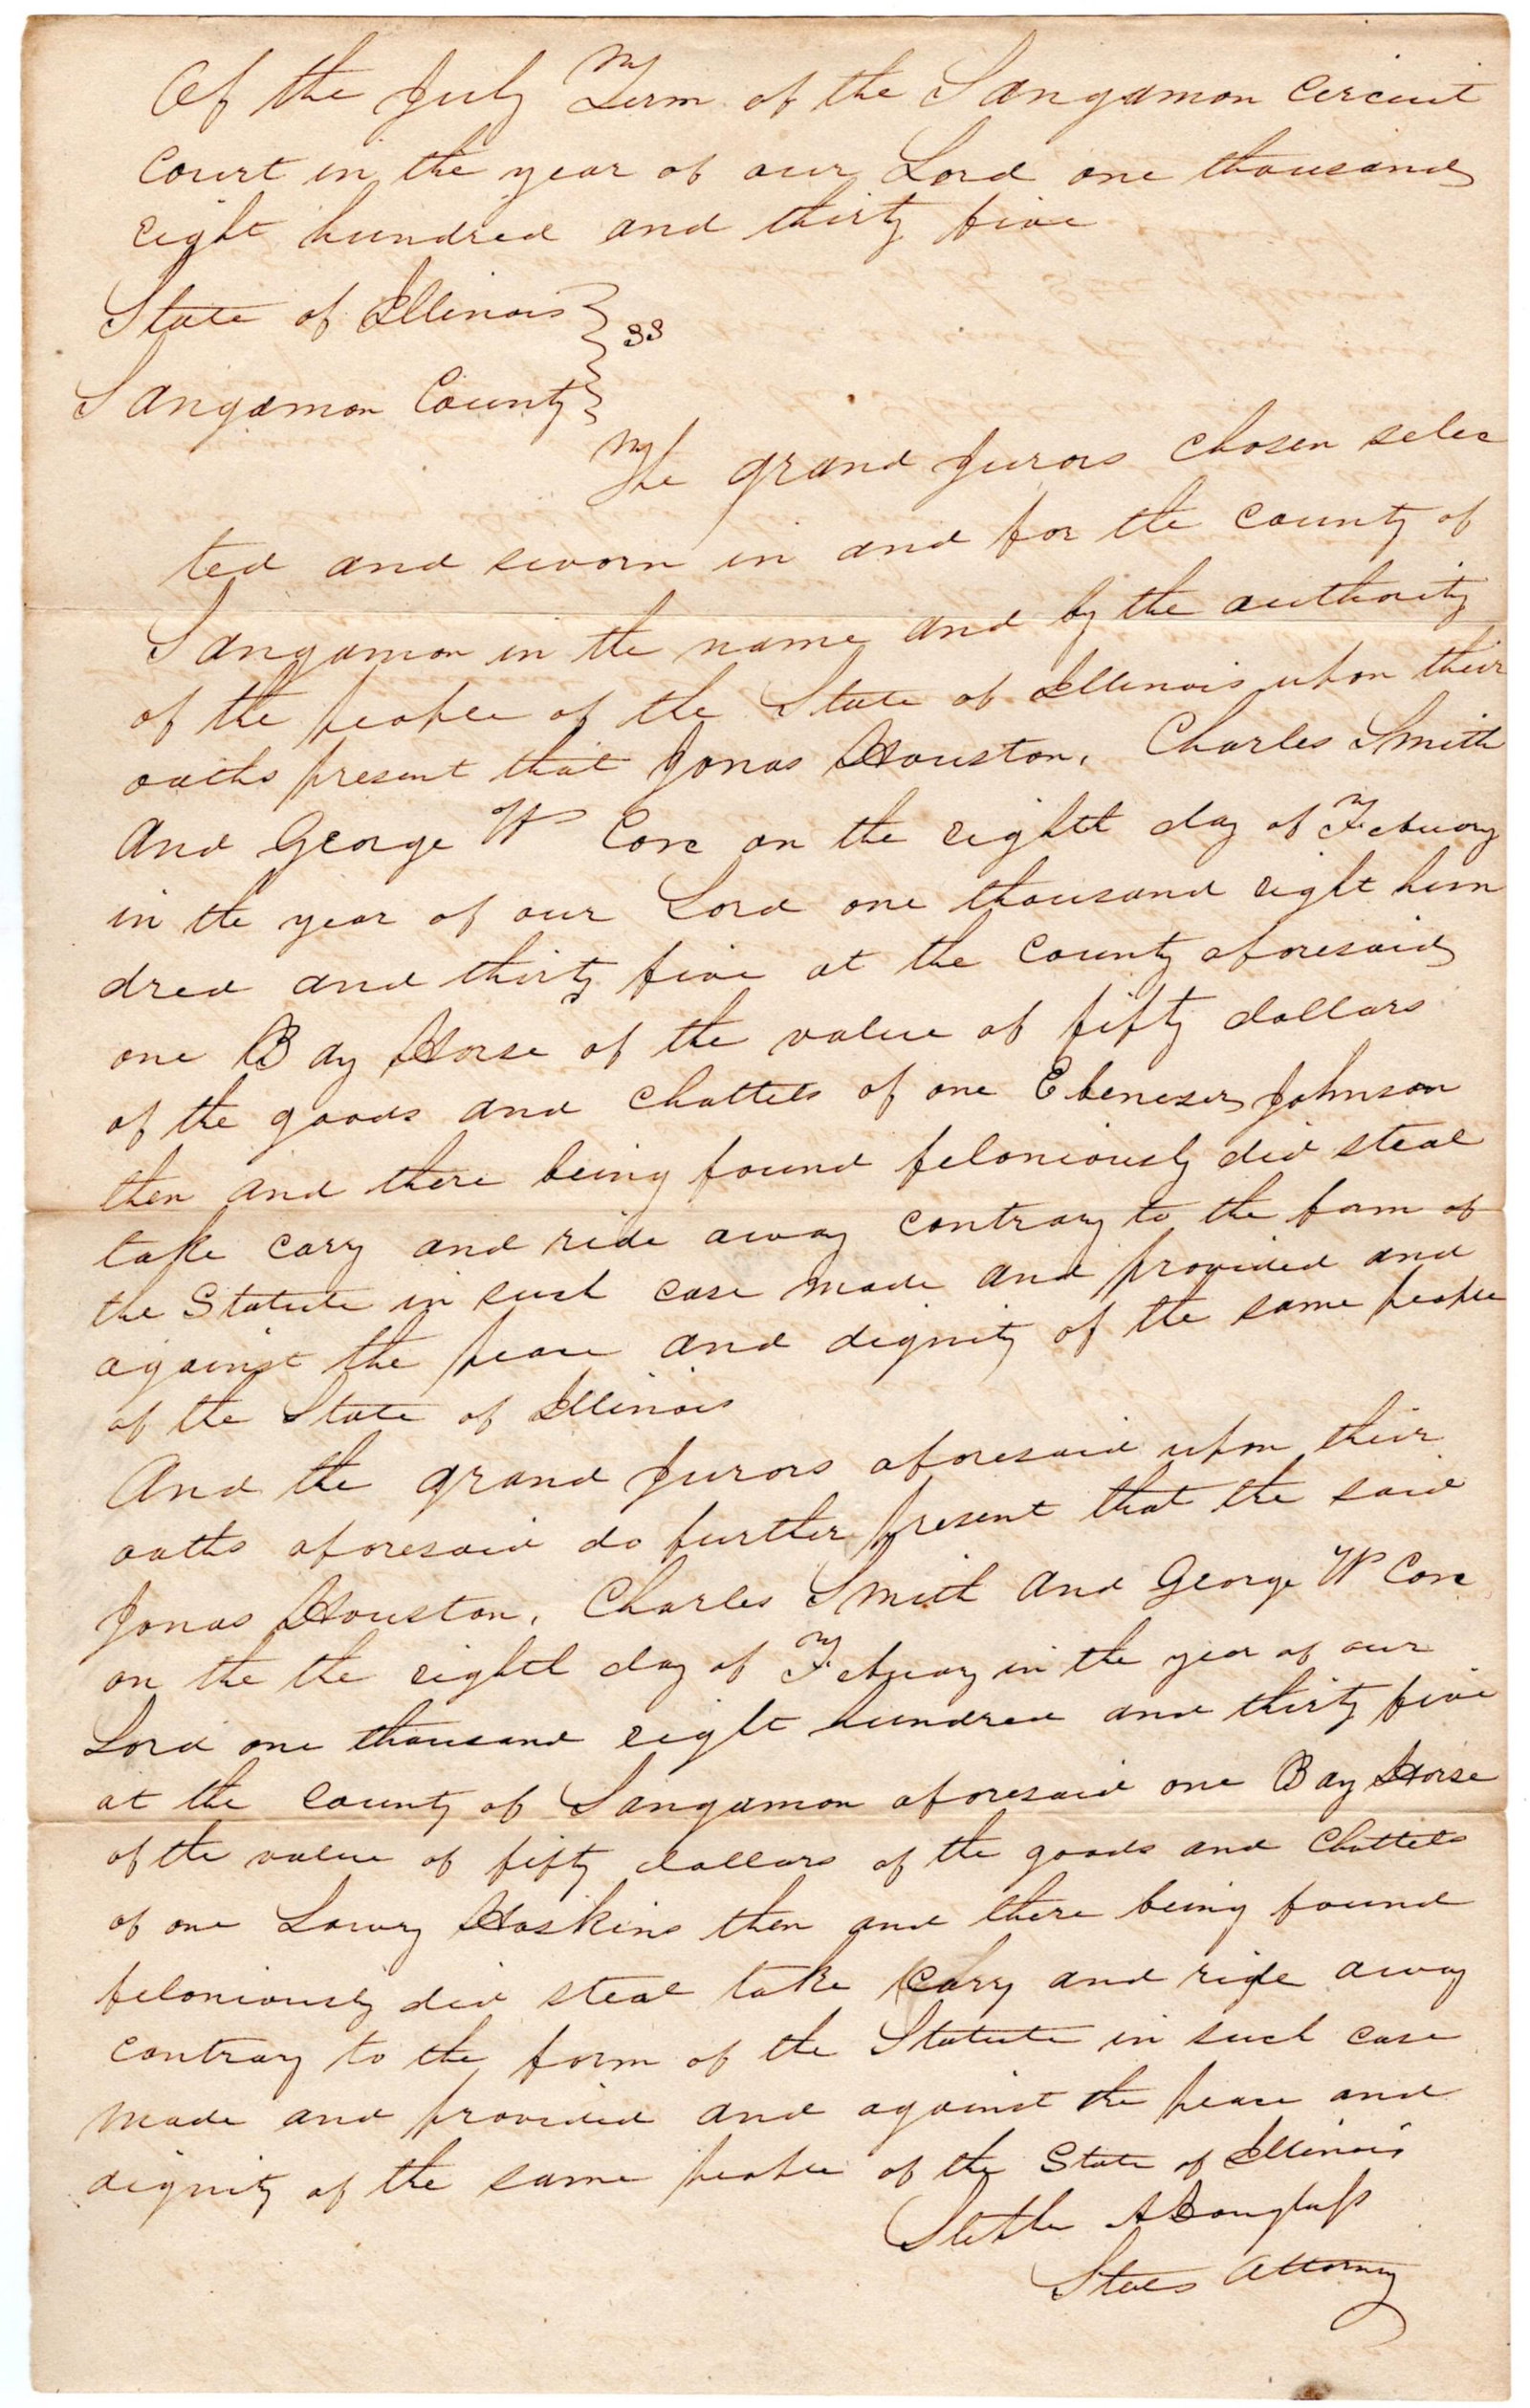 Of the July Term of the Sangamon Circuit
Court in the year of our Lord one thousand
eight hundred and thirty five
State of Illinois } ss
Sangamon County }
The grand Jurors chosen selec
ted and sworn in and for the county of
Sangamon in the name and by the authority
of the people of the State of Illinois upon their
oaths present that Jonas Houston, Charles Smith
and George W Core on the eighth day of Febuary
in the year of our Lord one thousand eight hun
dred and thirty five at the County aforesaid
one Bay Horse of the value of fifty dollars
of the goods and Chattels of one Ebenezer Johnson
then and there being found feloniously did steal
take cary and ride away contrary to the form of
the Statute in such case made and provided and
against the peace and dignity of the same people
of the State of Illinois
And the grand Jurors aforesaid upon their
oaths aforesaid do further present that the said
Jonas Houston, Charles Smith and George W Core
on the the eighth day of Febuary in the year of our
Lord one thousand eight hundred and thirty five
at the County of Sangamon aforesaid one Bay Horse
of the value of fifty dollars of the goods and Chattels
of one Lowry Hoskins then and there being found
feloniously did steal take cary and ride away
contrary to the form of the Statute in such case
made and provided and against the peace and
dignity of the same people of the State of Illinois
Stephen A Douglass
States Attorney